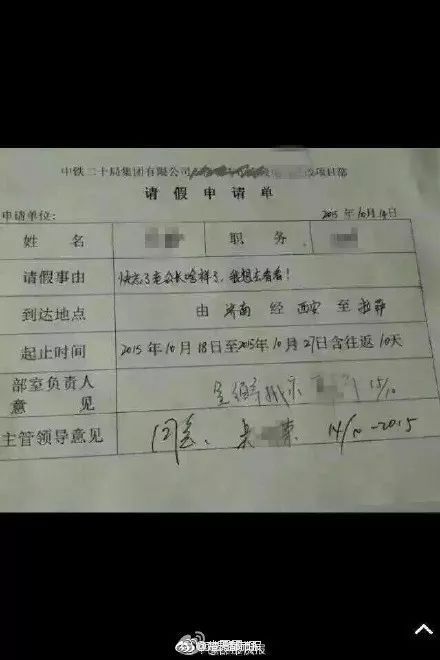 中铁二十局集团有限公司
项目部
请假申请单
申请单位: 2015年10月14日
姓名 职务
请假事由 快忘了老公长啥样了,我想去看看!
到达地点 由 济南 经 西安 至 拉萨
起止时间 2015年10月18日至2015年10月27日含往返10天
部室负责人意见 15/10
主管领导意见 同意. 14/10-2015